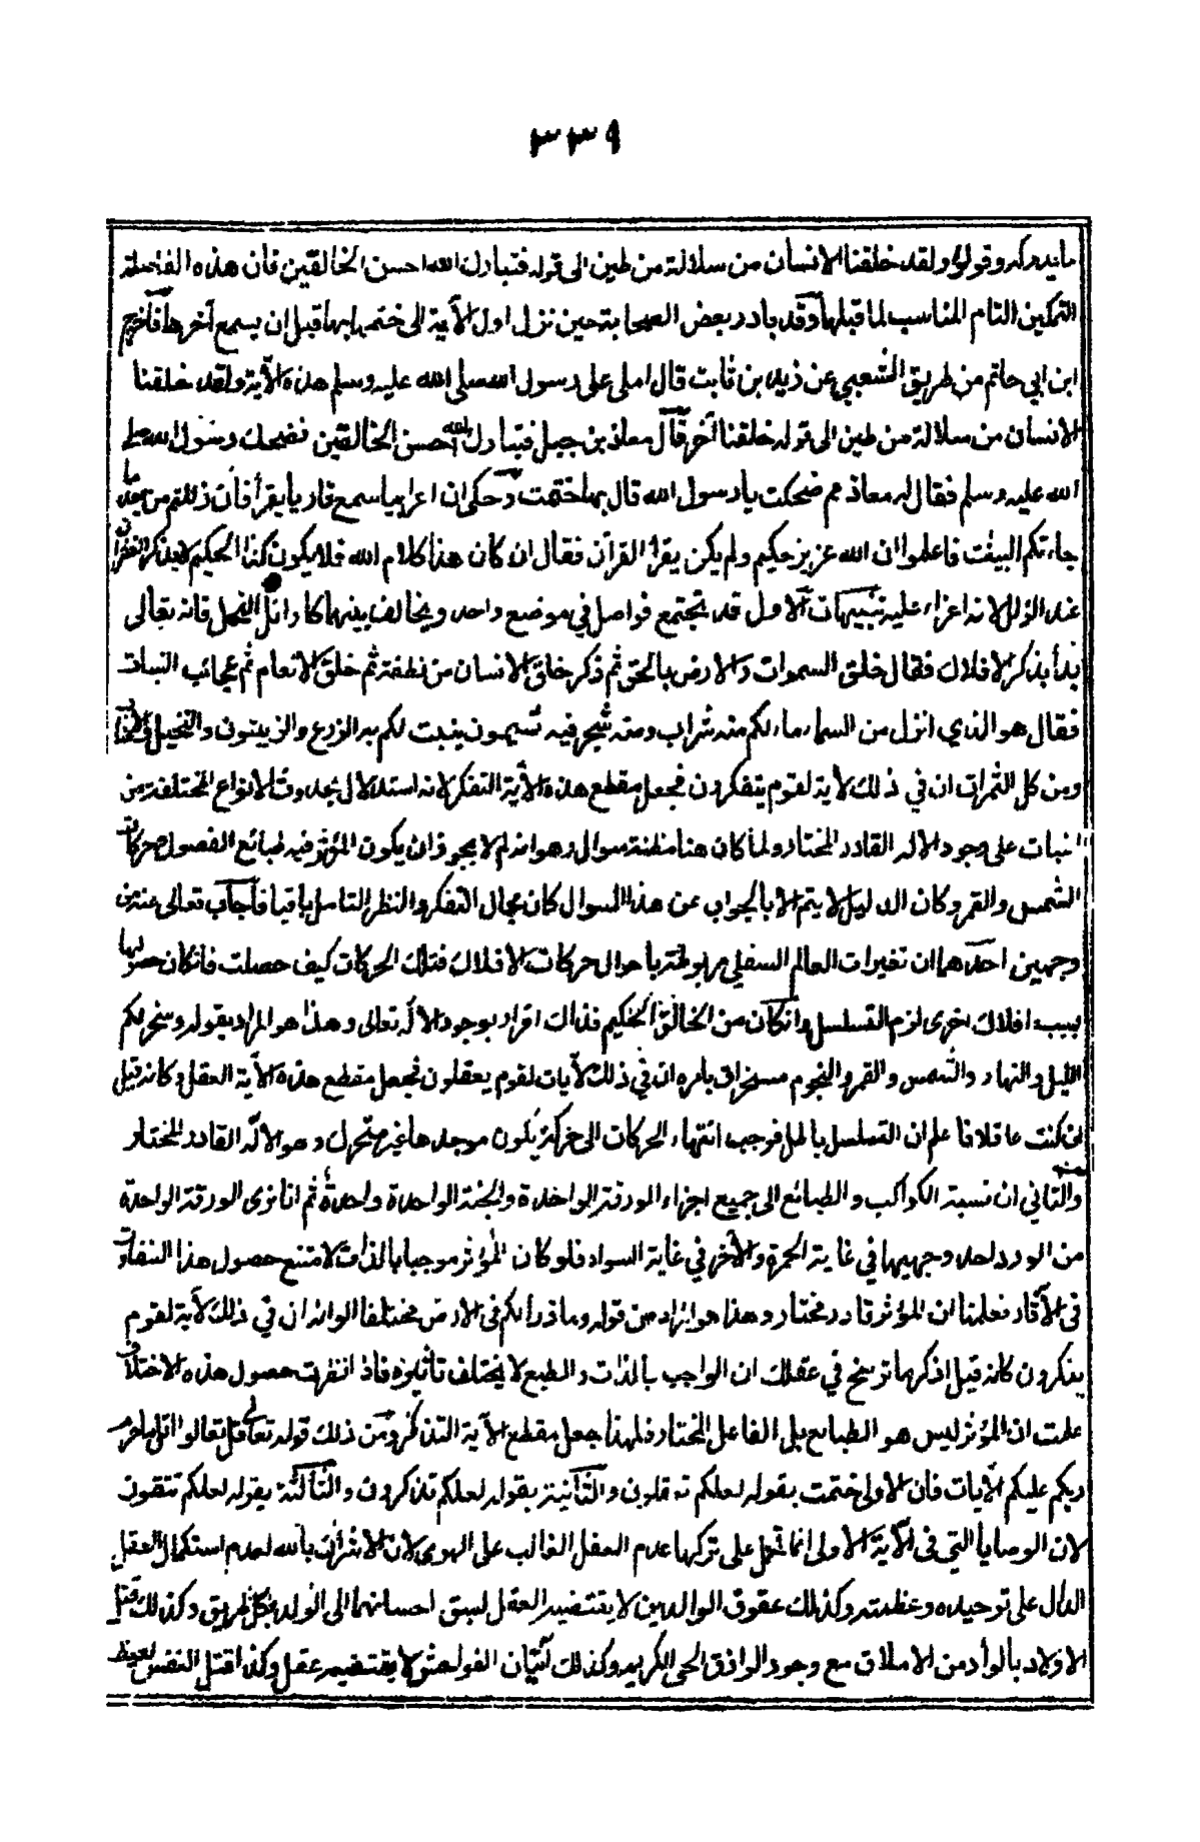 ٣٣٩
ما يدركه وقوله ولقد خلقنا الانسان من سلالة من طين الى قوله فتبارك الله احسن الخالقين فان هذه الفاصلة
التمكين التام المناسب لما قبلها وقد بادر بعض الصحابة حين نزل اول الآية الى ختمها بها قبل ان يسمع آخرها فاخرج
ابن ابي حاتم من طريق الشعبي عن زيد بن ثابت قال املى على رسول الله صلى الله عليه وسلم هذه الآية ولقد خلقنا
الانسان من سلالة من طين الى قوله خلقنا آخر قال معاذ بن جبل فتبارك الله احسن الخالقين فضحك رسول الله صلى
الله عليه وسلم فقال له معاذ مم ضحكت يا رسول الله قال بها ختمت وحكى ان اعرابيا سمع قاريا يقرأ فان زللتم من بعد ما
جاءتكم البينت فاعلموا ان الله عزيز حكيم ولم يكن يقرأ القرآن فقال ان كان هذا كلام الله فلا يكون كذا الحكيم لا يذكر الغفران
عند الزلل لانه اغراء عليه تنبيهات الاول قد تجتمع فواصل في موضع واحد ويخالف بينها كاوائل النحل فانه تعالى
بدأ بذكر الافلاك فقال خلق السموات والارض بالحق ثم ذكر خلق الانسان من نطفة ثم خلق الانعام ثم عجائب النبات
فقال هو الذي انزل من السماء ماء لكم منه شراب ومنه شجر فيه تسيمون ينبت لكم به الزرع والزيتون والنخيل والاعناب
ومن كل الثمرات ان في ذلك لآية لقوم يتفكرون فجعل مقطع هذه الآية التفكر لانه استدلال بحدوث الانواع المختلفة من
النبات على وجود الاله القادر المختار ولما كان هنا مظنة سوال وهو انه لم لا يجوز ان يكون المؤثر فيه طبائع الفصول وحركات
الشمس والقمر وكان الدليل لا يتم الا بالجواب عن هذا السوال كان مجال التفكر والنظر التامل باقيا فاجاب تعالى عنه من
وجهين احدهما ان تغيرات العالم السفلي مربوطة باحوال حركات الافلاك فتلك الحركات كيف حصلت فان كان حصولها
بسبب افلاك اخرى لزم التسلسل وان كان من الخالق الحكيم فذاك اقرار بوجود الاله تعالى وهذا هو المراد بقوله وسخر لكم
الليل والنهار والشمس والقمر والنجوم مسخرات بامره ان في ذلك لآيات لقوم يعقلون فجعل مقطع هذه الآية العقل وكانه قيل
ان كنت عاقلا فاعلم ان التسلسل باطل فوجب انتهاء الحركات الى حركة يكون موجدها غير متحرك وهو الاله القادر المختار
والثاني ان نسبة الكواكب والطبائع الى جميع اجزاء الورقة الواحدة والحبة الواحدة واحدة ثم انا نرى الورقة الواحدة
من الورد احد وجهيها في غاية الحمرة والآخر في غاية السواد فلو كان المؤثر موجبا بالذات لامتنع حصول هذا التفاوت
في الآثار فعلمنا ان المؤثر قادر مختار وهذا هو المراد من قوله وما ذرأ لكم في الارض مختلفا الوانه ان في ذلك لآية لقوم
يذكرون كانه قيل اذكر ما ترسخ في عقلك ان الواجب بالذات والطبع لا يختلف تأثيره فاذا نظرت حصول هذه الاختلاف
علمت ان المؤثر ليس هو الطبايع بل الفاعل المختار فلهذا جعل مقطع الآية التذكر ومن ذلك قوله تعالى قل تعالوا اتل ما حرم
ربكم عليكم الآيات فان الاولى ختمت بقوله لعلكم تعقلون والثانية بقوله لعلكم تذكرون والثالثة بقوله لعلكم تتقون
لان الوصايا التي في الآية الاولى انما تحمل على تركها عدم العقل الغالب على الهوى لان الاشراك بالله لعدم استكمال العقل
الدال على توحيده وعظمته وكذلك عقوق الوالدين لا يقتضيه العقل لسبق احسانهما الى الولد بكل طريق وكذلك قتل
الاولاد بالوأد من الاملاق مع وجود الرازق الحي الكريم وكذلك اتيان الفواحش لا يقتضيه عقل وكذا قتل النفس لغيظ